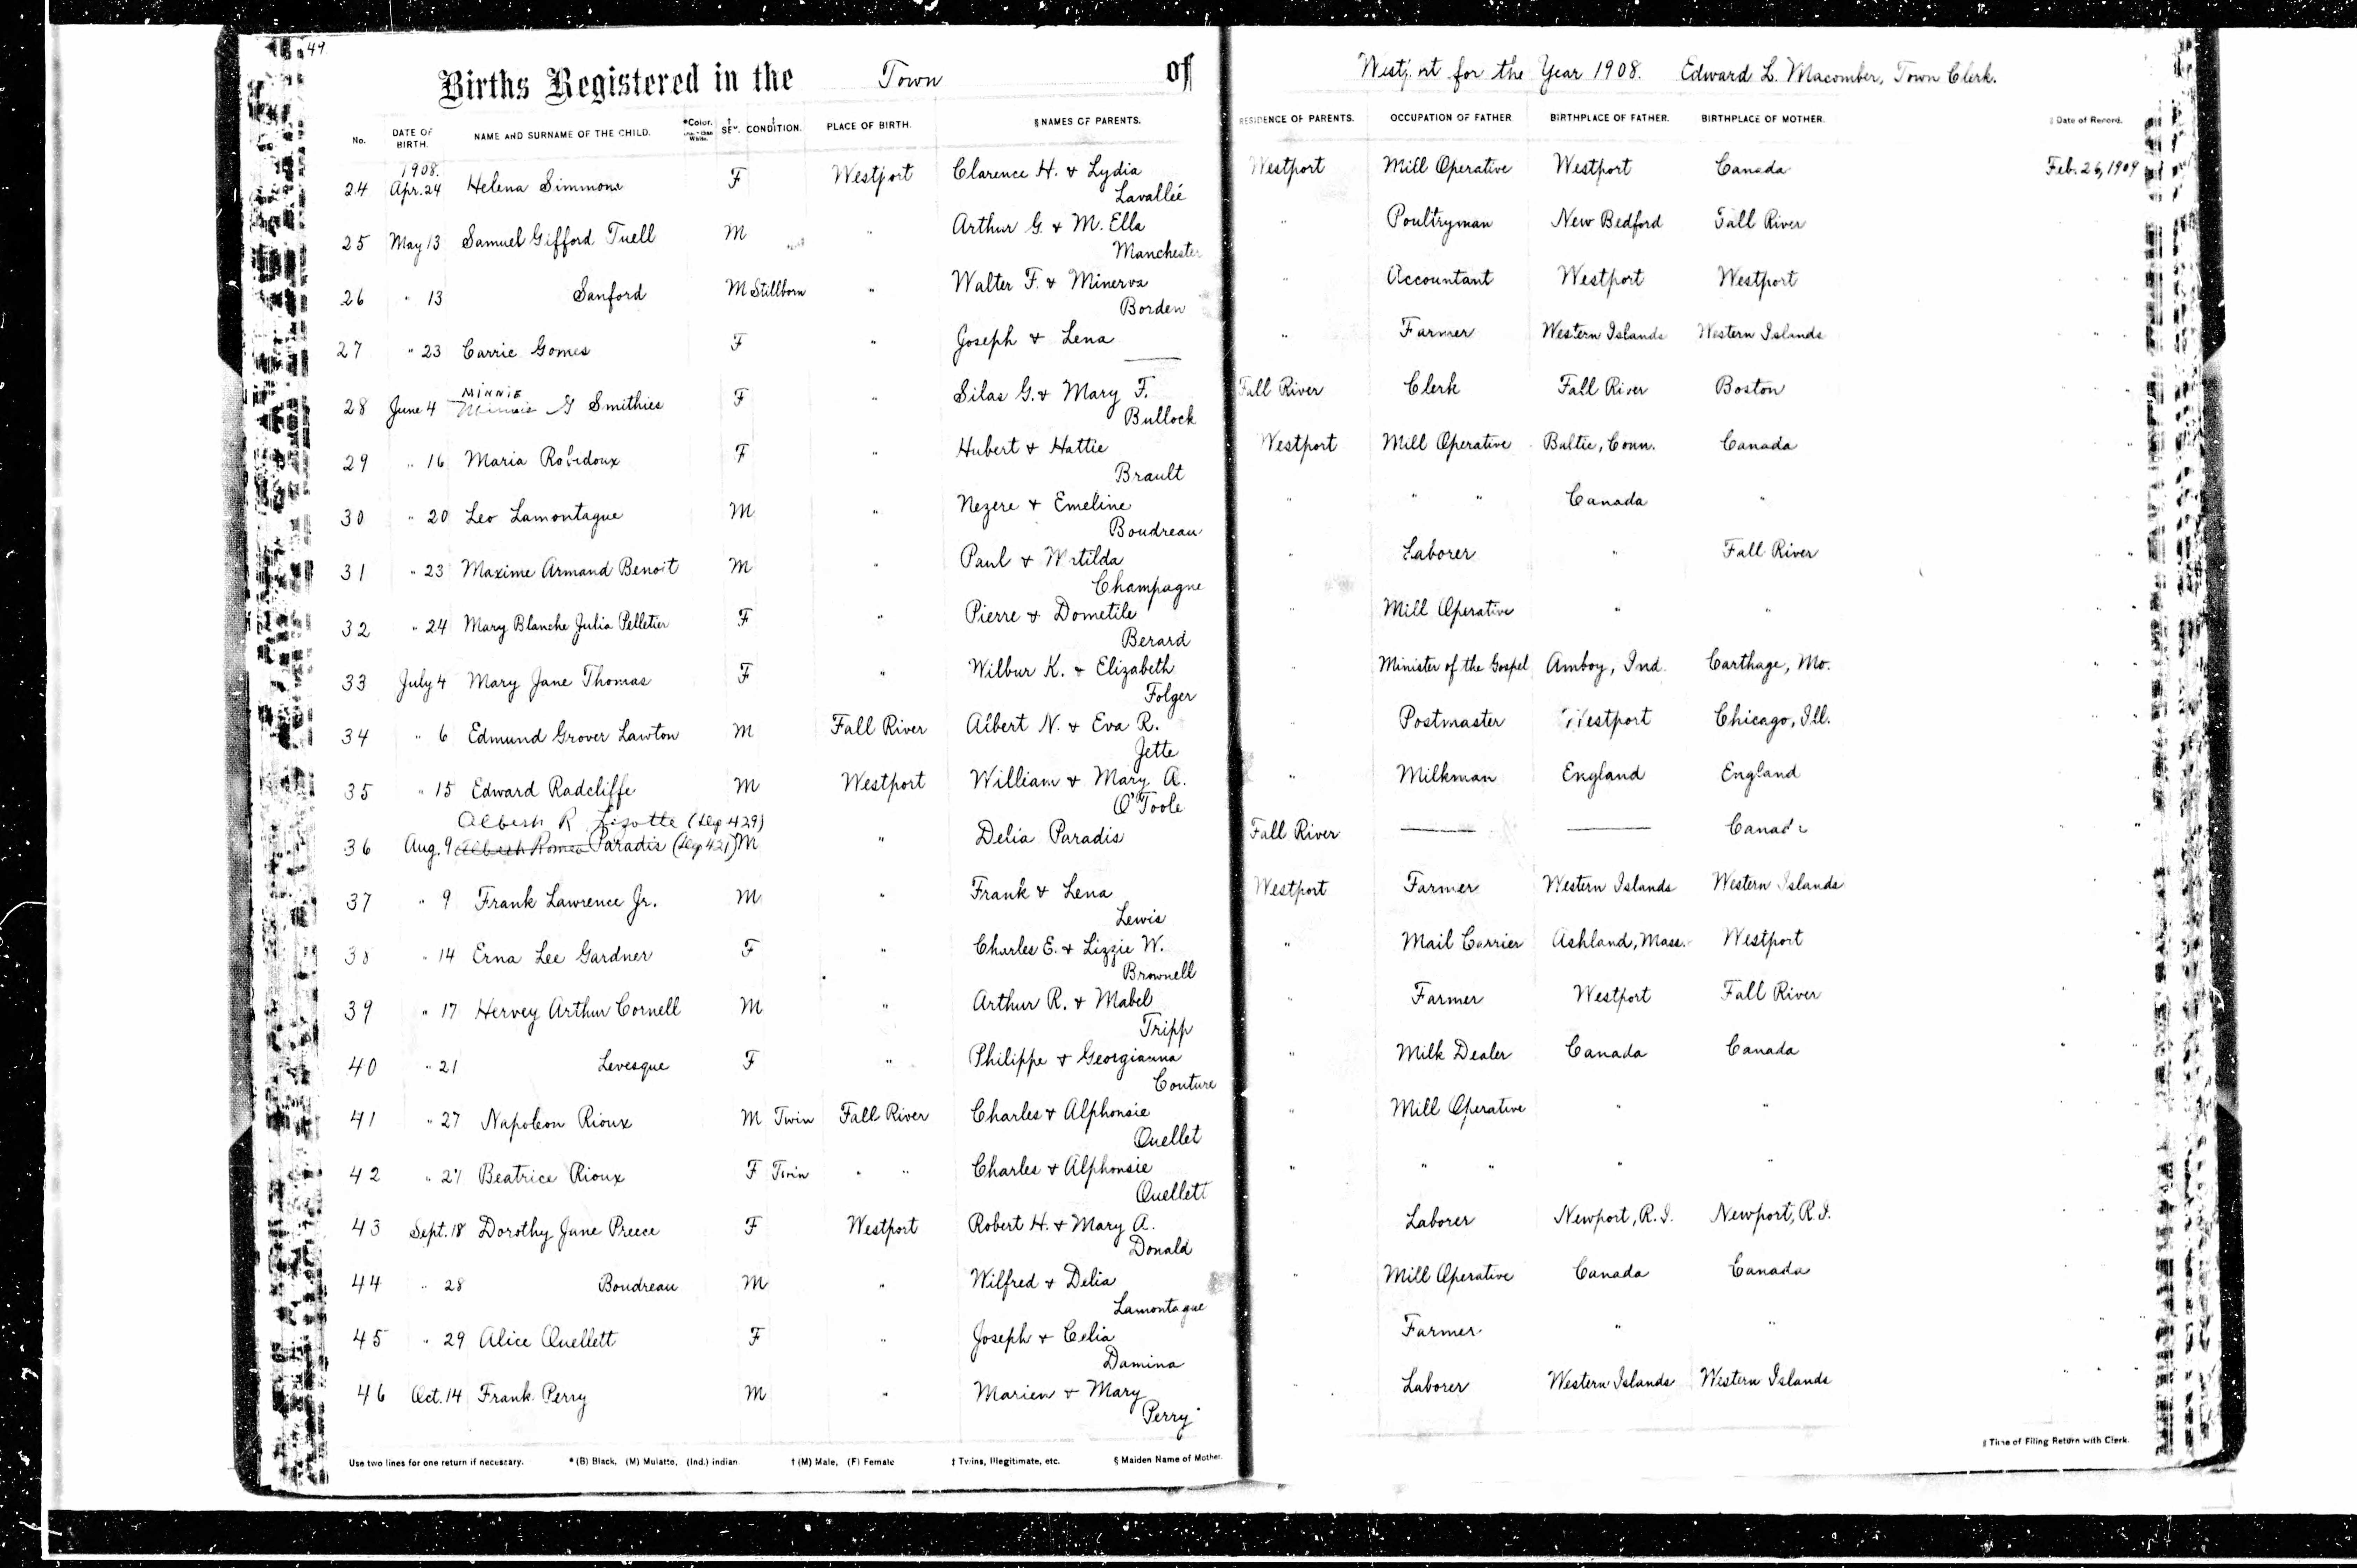 49
Births Registered in the Town of Westport for the Year 1908. Edward L. Macomber, Town Clerk.
No. DATE OF BIRTH. NAME AND SURNAME OF THE CHILD. *Color. other than White. † SEX. ‡ CONDITION. PLACE OF BIRTH. § NAMES OF PARENTS. RESIDENCE OF PARENTS. OCCUPATION OF FATHER. BIRTHPLACE OF FATHER. BIRTHPLACE OF MOTHER. Date of Record.
1908.
24 Apr. 24 Helena Simmons F Westport Clarence H. & Lydia Westport Mill Operative Westport Canada Feb. 26, 1909
Lavalleé
25 May 13 Samuel Gifford Tuell M " Arthur G. & M. Ella " Poultryman New Bedford Fall River
Manchester
26 " 13 Sanford M Stillborn " Walter F. & Minerva " Accountant Westport Westport
Borden
27 " 23 Carrie Gomes F " Joseph & Lena " Farmer Western Islands Western Islands "
——
MINNIE
28 June 4 Minnie G Smithies F " Silas G. & Mary F. Fall River Clerk Fall River Boston " "
Bullock
29 " 16 Maria Robidoux F " Hubert & Hattie Westport Mill Operative Baltic, Conn. Canada " "
Brault
30 " 20 Leo Lamontague M " Nezere & Emeline " " " Canada "
Boudreau
31 " 23 Maxime Armand Benoit M " Paul & Matilda " Laborer " Fall River " "
Champagne
32 " 24 Mary Blanche Julia Pelletier F " Pierre & Dometile " Mill Operative " " " "
Berard
33 July 4 Mary Jane Thomas F " Wilbur K. & Elizabeth " Minister of the Gospel Amboy, Ind. Carthage, Mo. " "
Folger
34 " 6 Edmund Grover Lawton M Fall River Albert N. & Eva R. " Postmaster Westport Chicago, Ill. " "
Jette
35 " 15 Edward Radcliffe M Westport William & Mary A. " Milkman England England
O'Toole
Albert R Lizotte (Leg 429)
36 Aug. 9 Albert Romeo Paradis (Leg 421) M " Delia Paradis Fall River —— —— Canada " "
37 " 9 Frank Lawrence Jr. M " Frank & Lena Westport Farmer Western Islands Western Islands "
Lewis
38 " 14 Erna Lee Gardner F " Charles E. & Lizzie W. " Mail Carrier Ashland, Mass. Westport " "
Brownell
39 " 17 Hervey Arthur Cornell M " Arthur R. & Mabel " Farmer Westport Fall River " "
Tripp
40 " 21 Levesque F " Philippe & Georgianna " Milk Dealer Canada Canada " "
Couture
41 " 27 Napoleon Rioux M Twin Fall River Charles & Alphonsie " Mill Operative " " " "
Ouellet
42 " 27 Beatrice Rioux F Twin " " Charles & Alphonsie " " " " " " "
Ouellett
43 Sept. 18 Dorothy Jane Preece F Westport Robert H. & Mary A. Laborer Newport, R.I. Newport, R.I. " "
Donald
44 " 28 Boudreau M " Wilfred & Delia " Mill Operative Canada Canada
Lamontague
45 " 29 Alice Ouellett F " Joseph & Celia Farmer " " " "
Damina
46 Oct. 14 Frank Perry M " Marien & Mary " Laborer Western Islands Western Islands " "
Perry
Use two lines for one return if necessary. *(B) Black, (M) Mulatto, (Ind.) Indian. †(M) Male, (F) Female ‡ Twins, Illegitimate, etc. § Maiden Name of Mother. ‖ Time of Filing Return with Clerk.